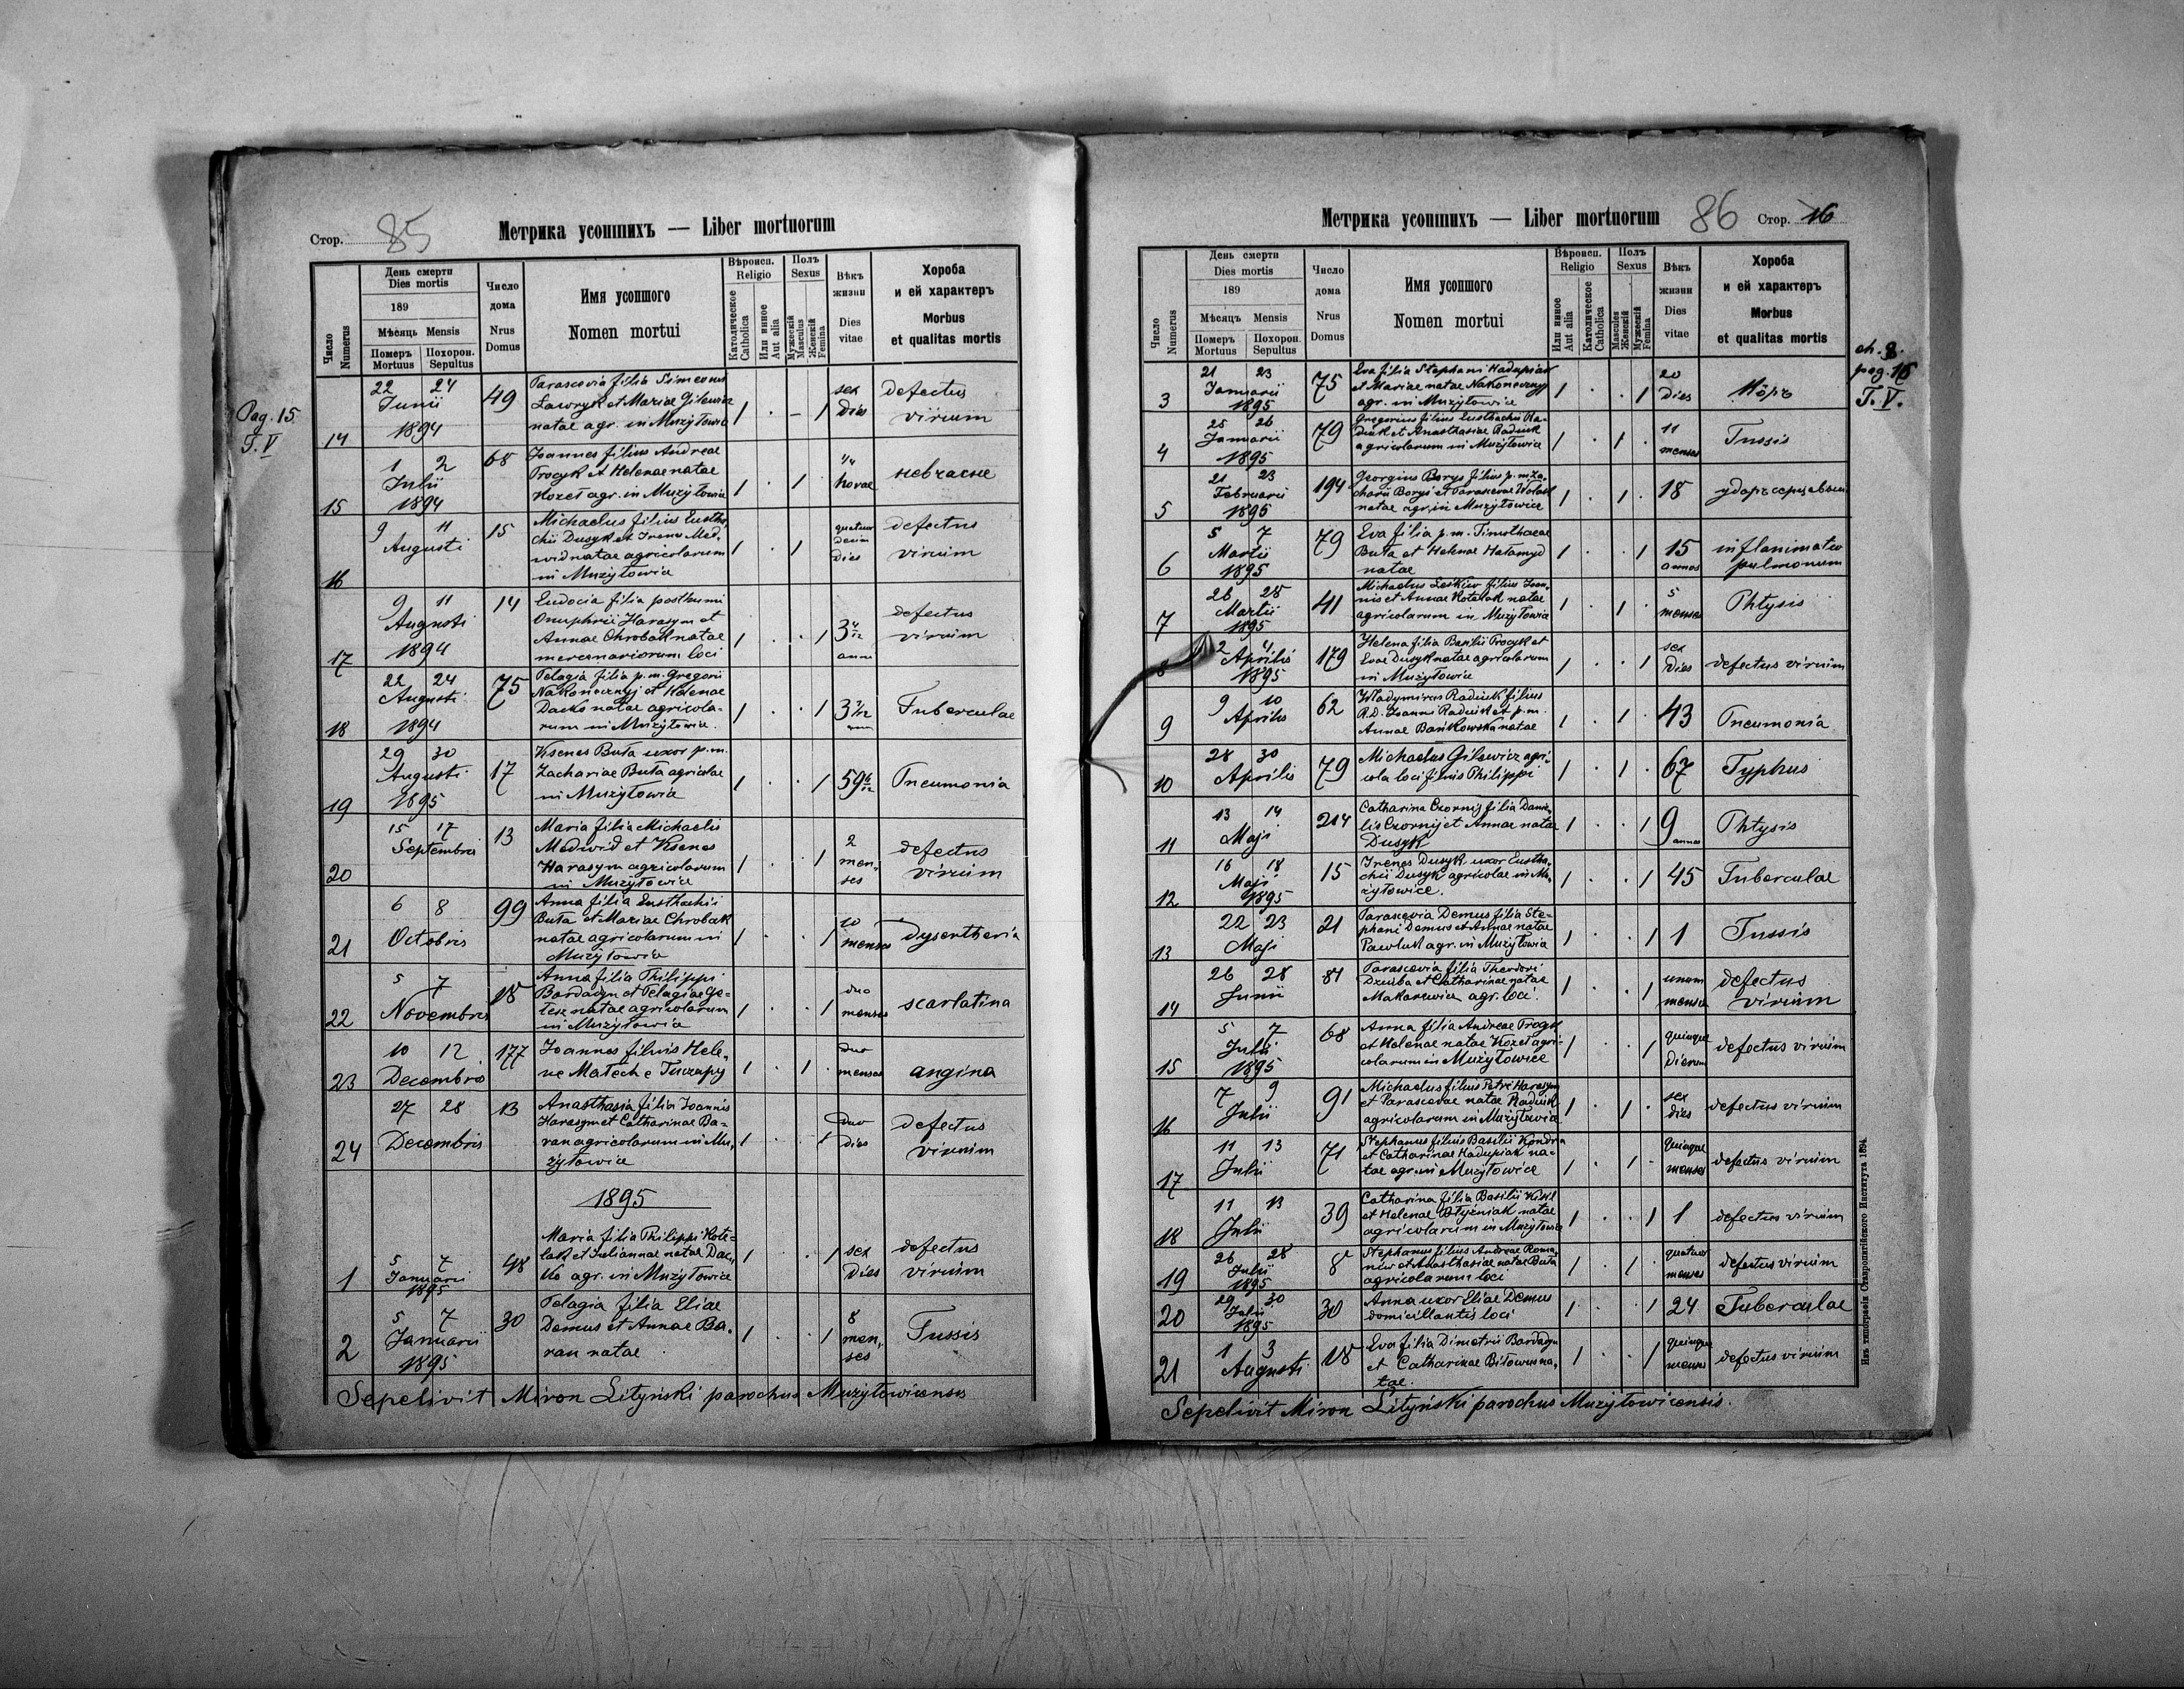 Стор. 85
Метрика усопшихъ — Liber mortuorum
Число Numerus
День смерти
Dies mortis
189
Мѣсяцъ Mensis
Померъ Mortuus
Похорон. Sepultus
Число дома
Nrus Domus
Имя усопшого
Nomen mortui
Вѣроисп.
Religio
Католическое Catholica
Или инное Aut alia
Полъ
Sexus
Мужескій Masculus
Женскій Femina
Вѣкъ жизни
Dies vitae
Хороба
и ей характеръ
Morbus
et qualitas mortis
Pag. 15
T. V
14
22 24
Junii
1894
49
Parascevia filia Simeonis
Ławryk et Mariae Gilewicz
natae agr. in Mużyłowice
1 . – 1
sex
dies
defectus
virium
15
1 2
Julii
1894
68
Joannes filius Andreae
Procyk et Helenae natae
Kozeł agr. in Mużyłowice
1 . 1 .
1/4
horae
невчасне
16
9 11
Augusti
15
Michaelus filius Eusta-
chii Dusyk et Irenes Med-
wid natae agricolarum
in Mużyłowice
1 . 1
quatuor
decim
dies
defectus
virium
17
9 11
Augusti
1894
14
Eudocia filia posthumi
Onuphrii Harasym et
Annae Chrobak natae
mercenariorum loci
1 . . 1
3 4/12
anni
defectus
virium
18
22 24
Augusti
1894
75
Pelagia filia p.m. Gregorii
Nakonecznyj et Helenae
Dacko natae agricola-
rum in Mużyłowice.
1 . . 1
3 7/12
Tuberculae
19
29 30
Augusti
1895
17
Ksenes Buta uxor p.m.
Zachariae Buta agricolae
in Mużyłowice
1 . . 1
59 6/12
Pneumonia
20
15 17
Septembris
13
Maria filia Michaelis
Medwid et Ksenes
Harasym agricolarum
in Mużyłowice
1 . . 1
2
men-
ses
defectus
virium
21
6 8
Octobris
99
Anna filia Eusthachii
Buta et Mariae Chrobak
natae agricolarum in
Mużyłowice
1 . . 1
10
menses
dysentheria
22
5 7
Novembris
18
Anna filia Philippi
Bardadyn et Pelagiae Ge-
łesz natae agricolarum
in Mużyłowice
1 . . 1
duo
menses
scarlatina
23
10 12
Decembris
177
Joannes filius Hele-
ne Matech e Tuczapy
1 . 1 .
duo
menses
angina
24
27 28
Decembris
13
Anasthasia filia Joannis
Harasym et Catharinae Ba-
ran agricolarum in Mu-
żyłowice
1 . . 1
duo
dies
defectus
virium
1895
1
5 7
Januarii
1895
48
Maria filia Philippi Kote-
lak et Juliannae natae Dac-
ko agr. in Mużyłowice
1 . . 1
sex
dies
defectus
virium
2
5 7
Januarii
1895
30
Pelagia filia Eliae
Demus et Annae Ba-
ran natae
1 . . 1
8
men-
ses
Tussis
Sepelivit Miron Lityński parochus Mużyłowicensis
Метрика усопшихъ — Liber mortuorum
86 Стор. 16
Число Numerus
День смерти
Dies mortis
189
Мѣсяцъ Mensis
Померъ Mortuus
Похорон. Sepultus
Число дома
Nrus Domus
Имя усопшого
Nomen mortui
Вѣроисп.
Religio
Или инное Aut alia
Католическое Catholica
Полъ
Sexus
Masculus Женскій
Мужескій Femina
Вѣкъ жизни
Dies vitae
Хороба
и ей характеръ
Morbus
et qualitas mortis
ch. 8.
pag. 16
T. V.
3
21 23
Januarii
1895
75
Eva filia Stephani Hadupiak
et Mariae natae Nakonecznyj
agr. in Mużyłowice
1 . . 1
20
dies
Кôръ
4
25 26
Januarii
1895
79
Gregorius filius Eusthachii Ra-
diuk et Anasthasiae Radiuk
agricolarum in Mużyłowice
1 . 1 .
11
menses
Tussis
5
21 23
Februarii
1895
194
Georgius Borys filius p.m. Za-
charii Borys et Parascevae
natae agr. in Mużyłowice
1 . 1 .
18
ударъ серцевый
6
5 7
Martii
1895
79
Eva filia p.m. Timothaeae
Buta et Helenae Hałamyd
natae
1 . . 1
15
annos
inflamatio
pulmonum
7
26 28
Martii
1895
41
Michaelus Leskiw filius Joan-
nis et Annae Kotelak natae
agricolarum in Mużyłowice
1 . 1 .
5
menses
Phtysis
8
2 4
Aprilis
1895
179
Helena filia Basilii Procyk et
Evae Dusyk natae agricolarum
in Mużyłowice
1 . . 1
sex
dies
defectus virium
9
9 10
Aprilis
62
Władymirus Radiuk filius
R.D. Joanni Radiuk et p.m.
Annae Bańkowska natae
1 . 1 .
43
Pneumonia
10
28 30
Aprilis
79
Michaelus Gilewicz agri-
cola loci filius Philippi
1 . 1 .
67
Typhus
11
13 14
Maji
214
Catharina Czornij filia Dani-
lis Czornij et Annae natae
Dusyk
1 . . 1
9
annos
Phtysis
12
16 18
Maji
1895
15
Irenes Dusyk uxor Eustha-
chii Dusyk agricolae in Mu-
żyłowice.
1 . . 1
45
Tuberculae
13
22 23
Maji
21
Parascevia Demus filia Ste-
phani Demus et Annae natae
Pawluk agr. in Mużyłowice
1 . . 1
1
Tussis
14
26 28
Junii
81
Parascevia filia Theodori
Dziuba et Catharinae natae
Makarewicz agr. loci.
1 . . 1
unum
mensem
defectus
virium
15
5 7
Julii
1895
68
Anna filia Andreae Procyk
et Helenae natae Kozeł agri-
colarum in Mużyłowice
1 . . 1
quinque
dierum
defectus virium
16
7 9
Julii
91
Michaelus filius Petri Harasym
et Parascevae natae Radiuk
agricolarum in Mużyłowice
1 . 1 .
sex
dies
defectus virium
17
11 13
Julii
71
Stephanus filius Basilii Kondra
et Catharinae Hadupiak na-
tae agr. in Mużyłowice
1 . 1 .
quinque
menses
defectus virium
18
11 13
Julii
39
Catharina filia Basilii Kisil
et Helenae natae
agricolarum in Mużyłowice
1 . . 1
1
defectus virium
19
26 28
Julii
1895
8
Stephanus filius Andreae Roma-
niw et Anasthasiae natae Buta
agricolarum loci
1 . 1 .
quatuor
menses
defectus virium
20
29 30
Julii
1895
30
Anna uxor Eliae Demus
domicillantis loci
1 . . 1
24
Tuberculae
21
1 3
Augusti
18
Eva filia Dimetrii Bardadyn
et Catharinae Biłowus na-
tae.
1 . . 1
quinque
menses
defectus virium
Sepelivit Miron Lityński parochus Mużyłowicensis.
Изъ типографіи Ставропигійского Института 1894.